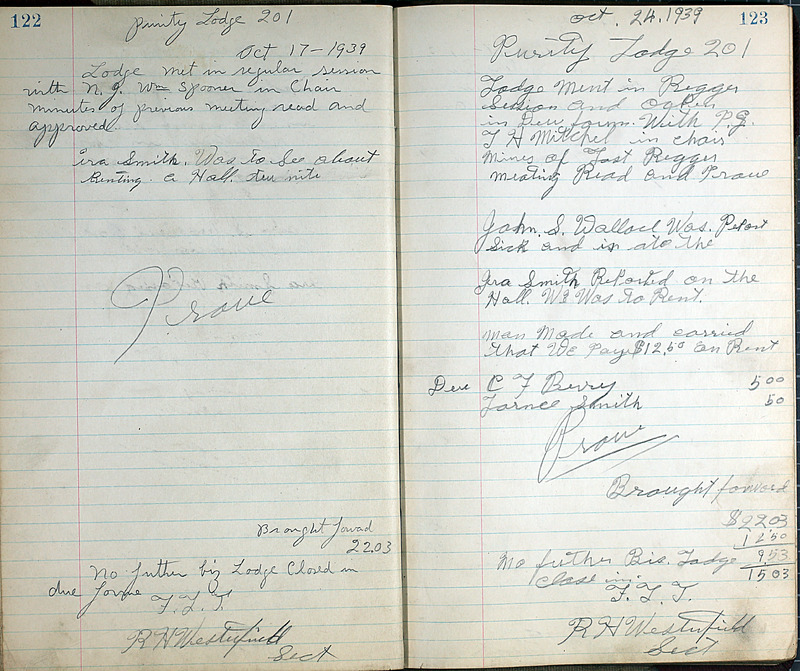 122
Purity Lodge 201
Oct 17-1939
Lodge met in regular session
with N. G. Wm Spooner in Chair
minutes of previous meeting read and
approved.
Ira Smith. Was To See about
Renting a Hall. teu nite
Prove
Brought forwad
22.03
No futher biz Lodge Closed in
due forme
F. L. T.
R H Westerfield
Sect
Oct. 24, 1939
123
Purity Lodge 201
Lodge Ment in Regger
Session and
in Deu form. With P.G.
T H Mitchel in chair
Mines of Last Regger
meating Read and Prove
John. S. Wallace Was. Report
Sick and is
Ira Smith Reported on the
Hall. We Was To Rent.
man Made and carried
that We Pay $12.50 on Rent
Deu C F Berry 5 00
Smith 50
Prove
Brought forward
$22.03
12 50
9.53
No futher Bis. Lodge
15 03
close in.
F. L. T.
R H Westerfield
Sect